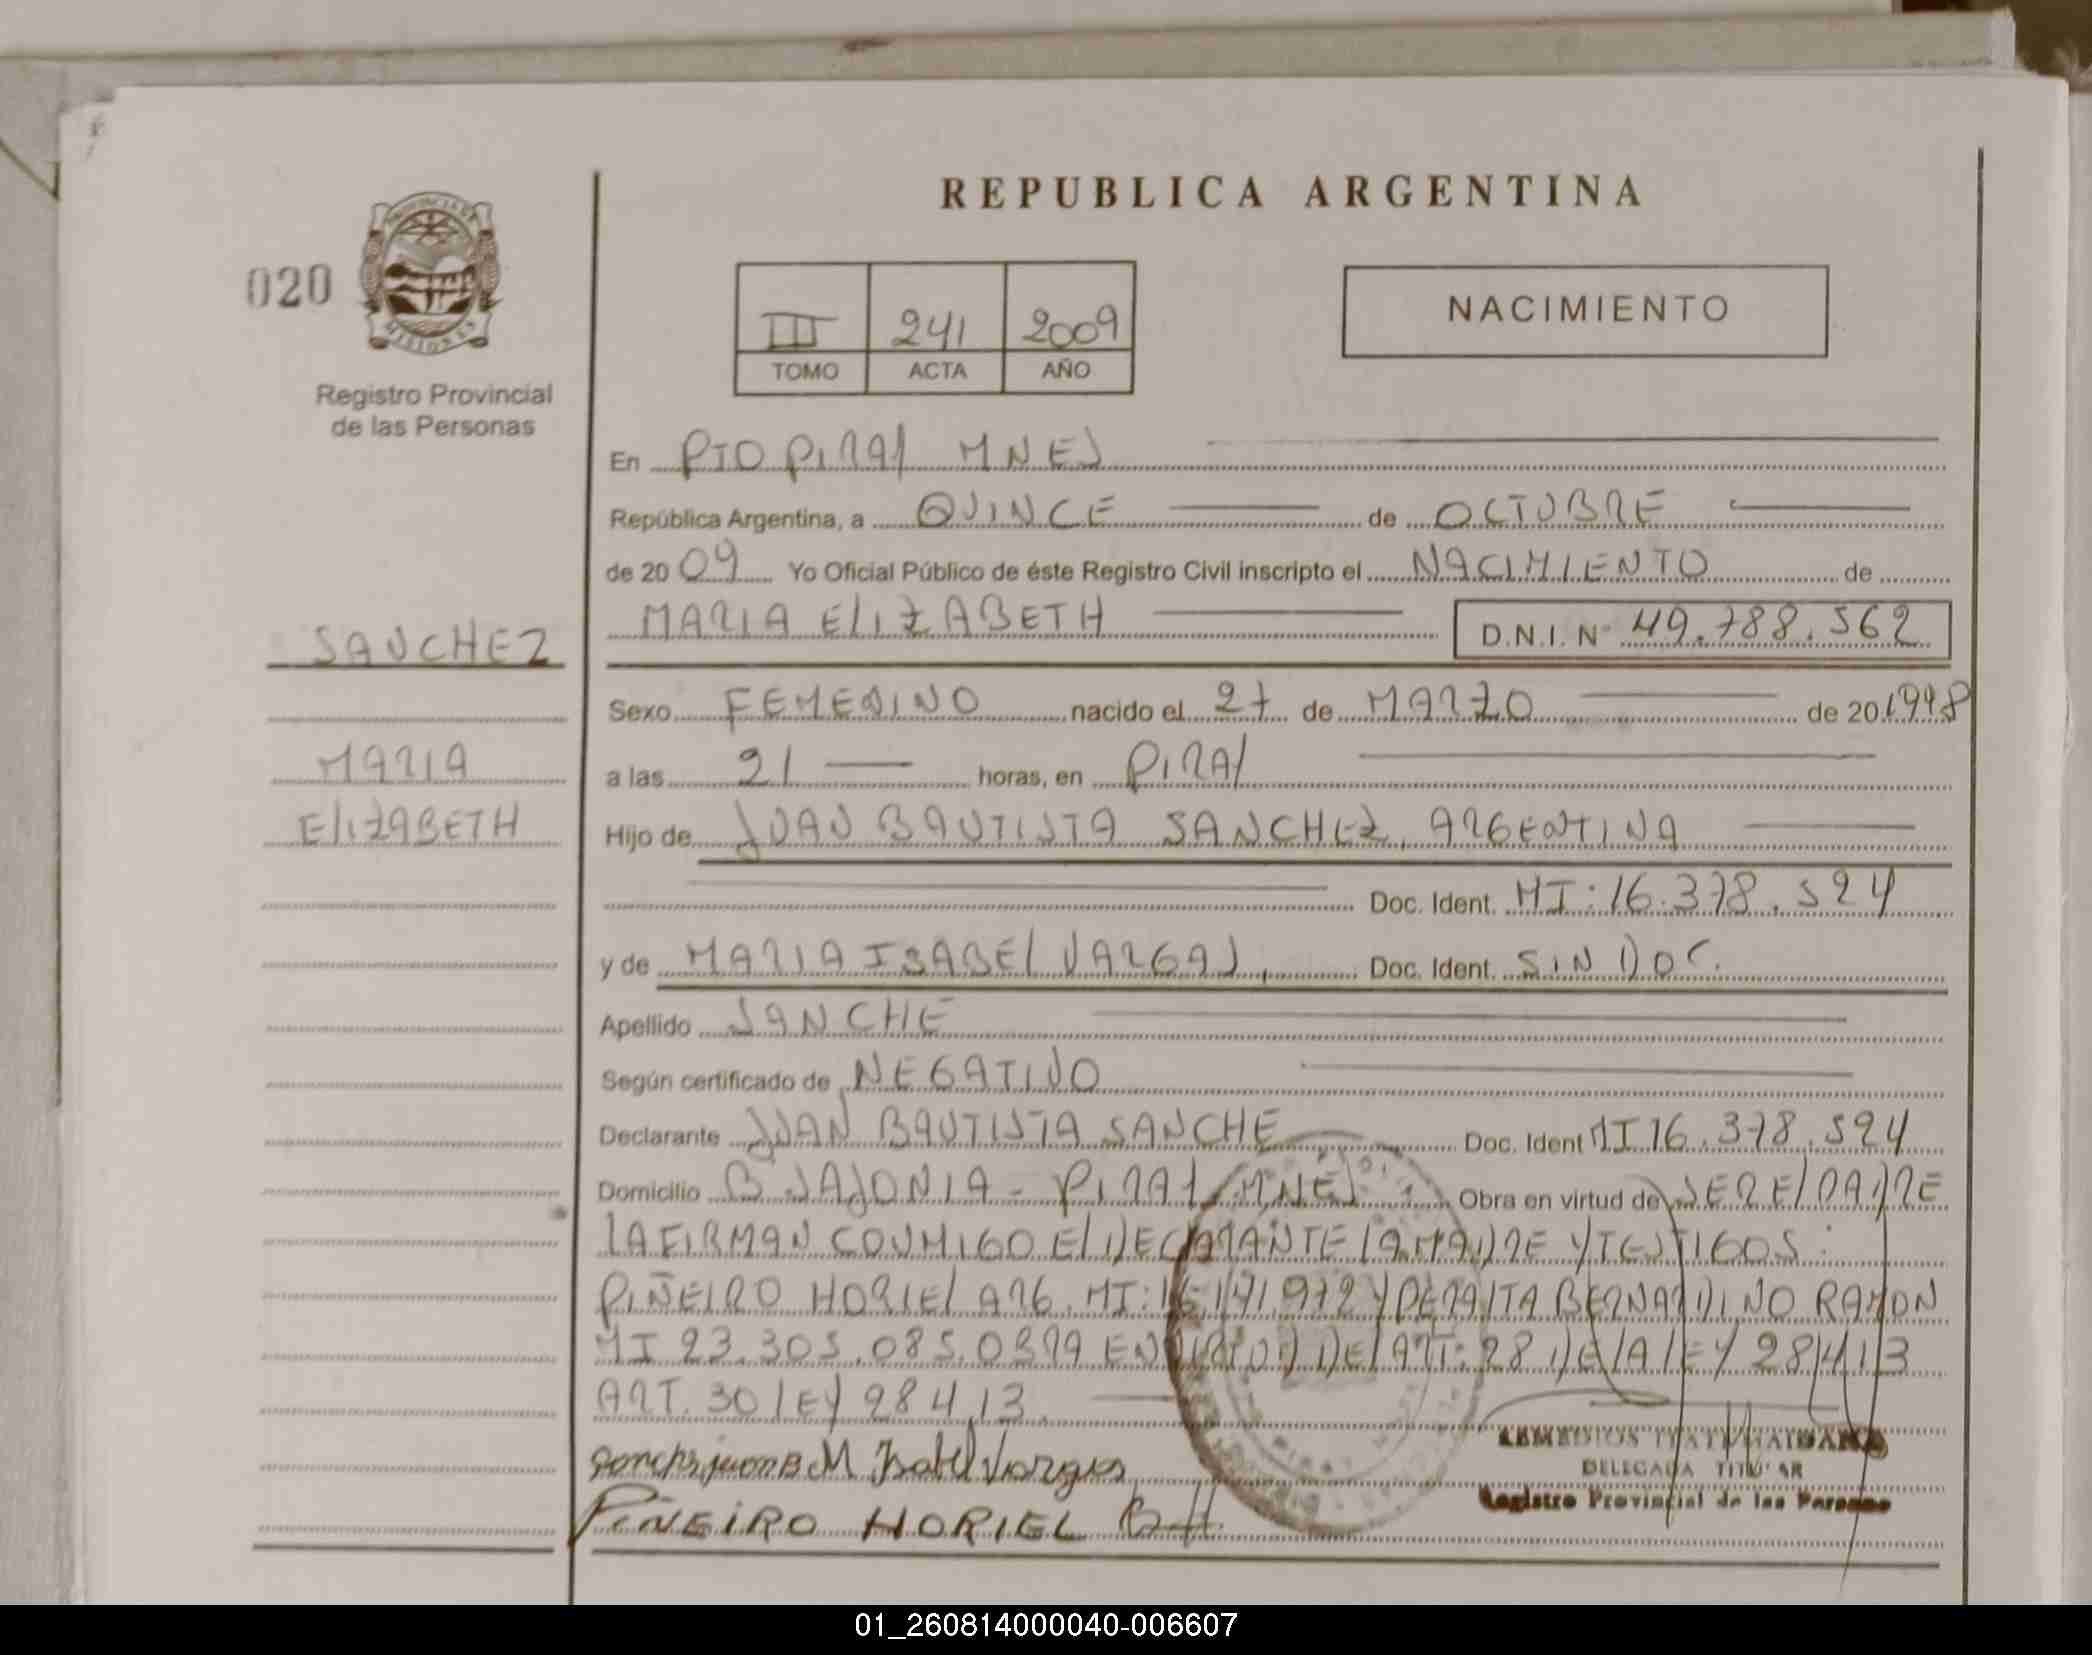 REPUBLICA ARGENTINA
020
PROVINCIA DE
MISIONES
Registro Provincial
de las Personas
III 241 2009
TOMO ACTA AÑO
NACIMIENTO
En PTO PIRAY MNES
República Argentina, a QUINCE de OCTUBRE
de 20 09 Yo Oficial Público de éste Registro Civil inscripto el NACIMIENTO de
MARIA ELIZABETH D.N.I. Nº 49.788.562
SANCHEZ
MARIA
ELIZABETH
Sexo FEMENINO nacido el 27 de MARZO de 20 1998
a las 21 horas, en PIRAY
Hijo de JUAN BAUTISTA SANCHEZ, ARGENTINA
Doc. Ident. MI: 16.378.524
y de MARIA ISABEL VARGAS, Doc. Ident. SIN DOC.
Apellido SANCHE
Según certificado de NEGATIVO
Declarante JUAN BAUTISTA SANCHE Doc. Ident MI 16.378.524
Domicilio B SAJONIA - PIRAY MNES Obra en virtud de SER EL PADRE
LA FIRMAN CONMIGO EL DECLARANTE LA MADRE Y TESTIGOS:
PIÑEIRO HORIEL ARG. MI: Y PERALTA BERNARDINO RAMON
MI 23.305.085. EN VIRTUD DEL ART: 28 DE LA LEY 28413
ART. 30 LEY 28413
Juan B M Isabel Vargas
PIÑEIRO HORIEL
DELEGADA TITULAR
Registro Provincial de las Personas
01_260814000040-006607